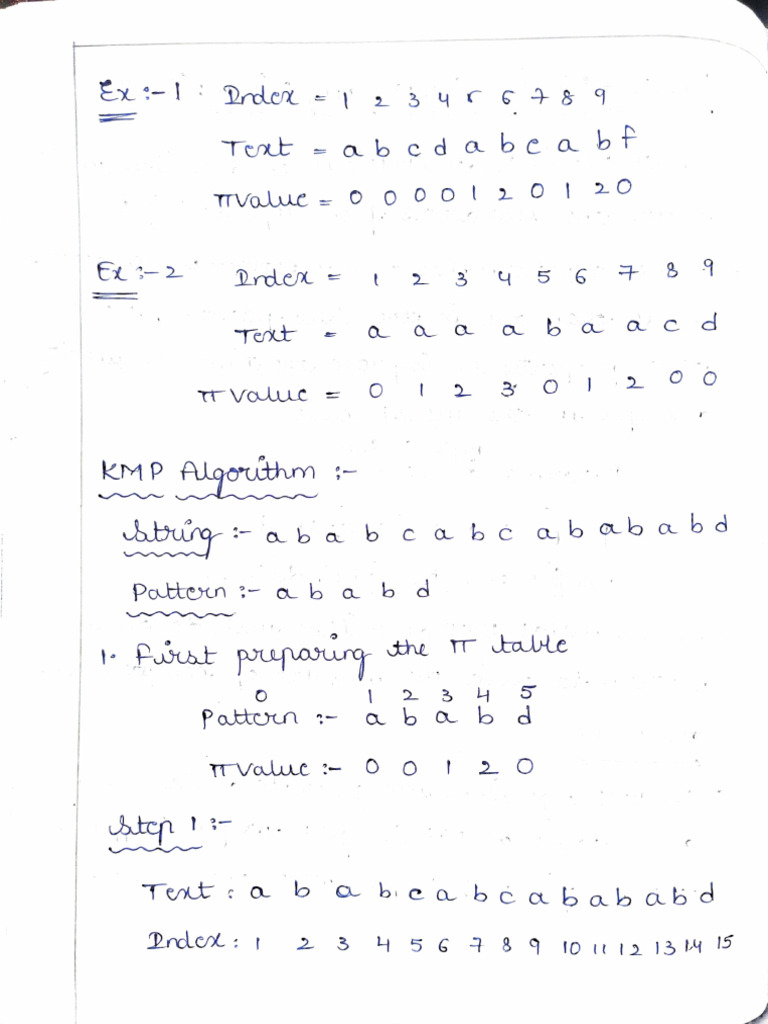 Ex :- 1 : Index = 1 2 3 4 5 6 7 8 9
Text = a b c d a b e a b f
π Value = 0 0 0 0 1 2 0 1 2 0
Ex :- 2 Index = 1 2 3 4 5 6 7 8 9
Text = a a a a b a a c d
π Value = 0 1 2 3 0 1 2 0 0
KMP Algorithm :-
String :- a b a b c a b c a b a b a b d
Pattern :- a b a b d
1. First preparing the π table
0 1 2 3 4 5
Pattern :- a b a b d
π Value :- 0 0 1 2 0
Step 1 :-
Text : a b a b c a b c a b a b a b d
Index : 1 2 3 4 5 6 7 8 9 10 11 12 13 14 15